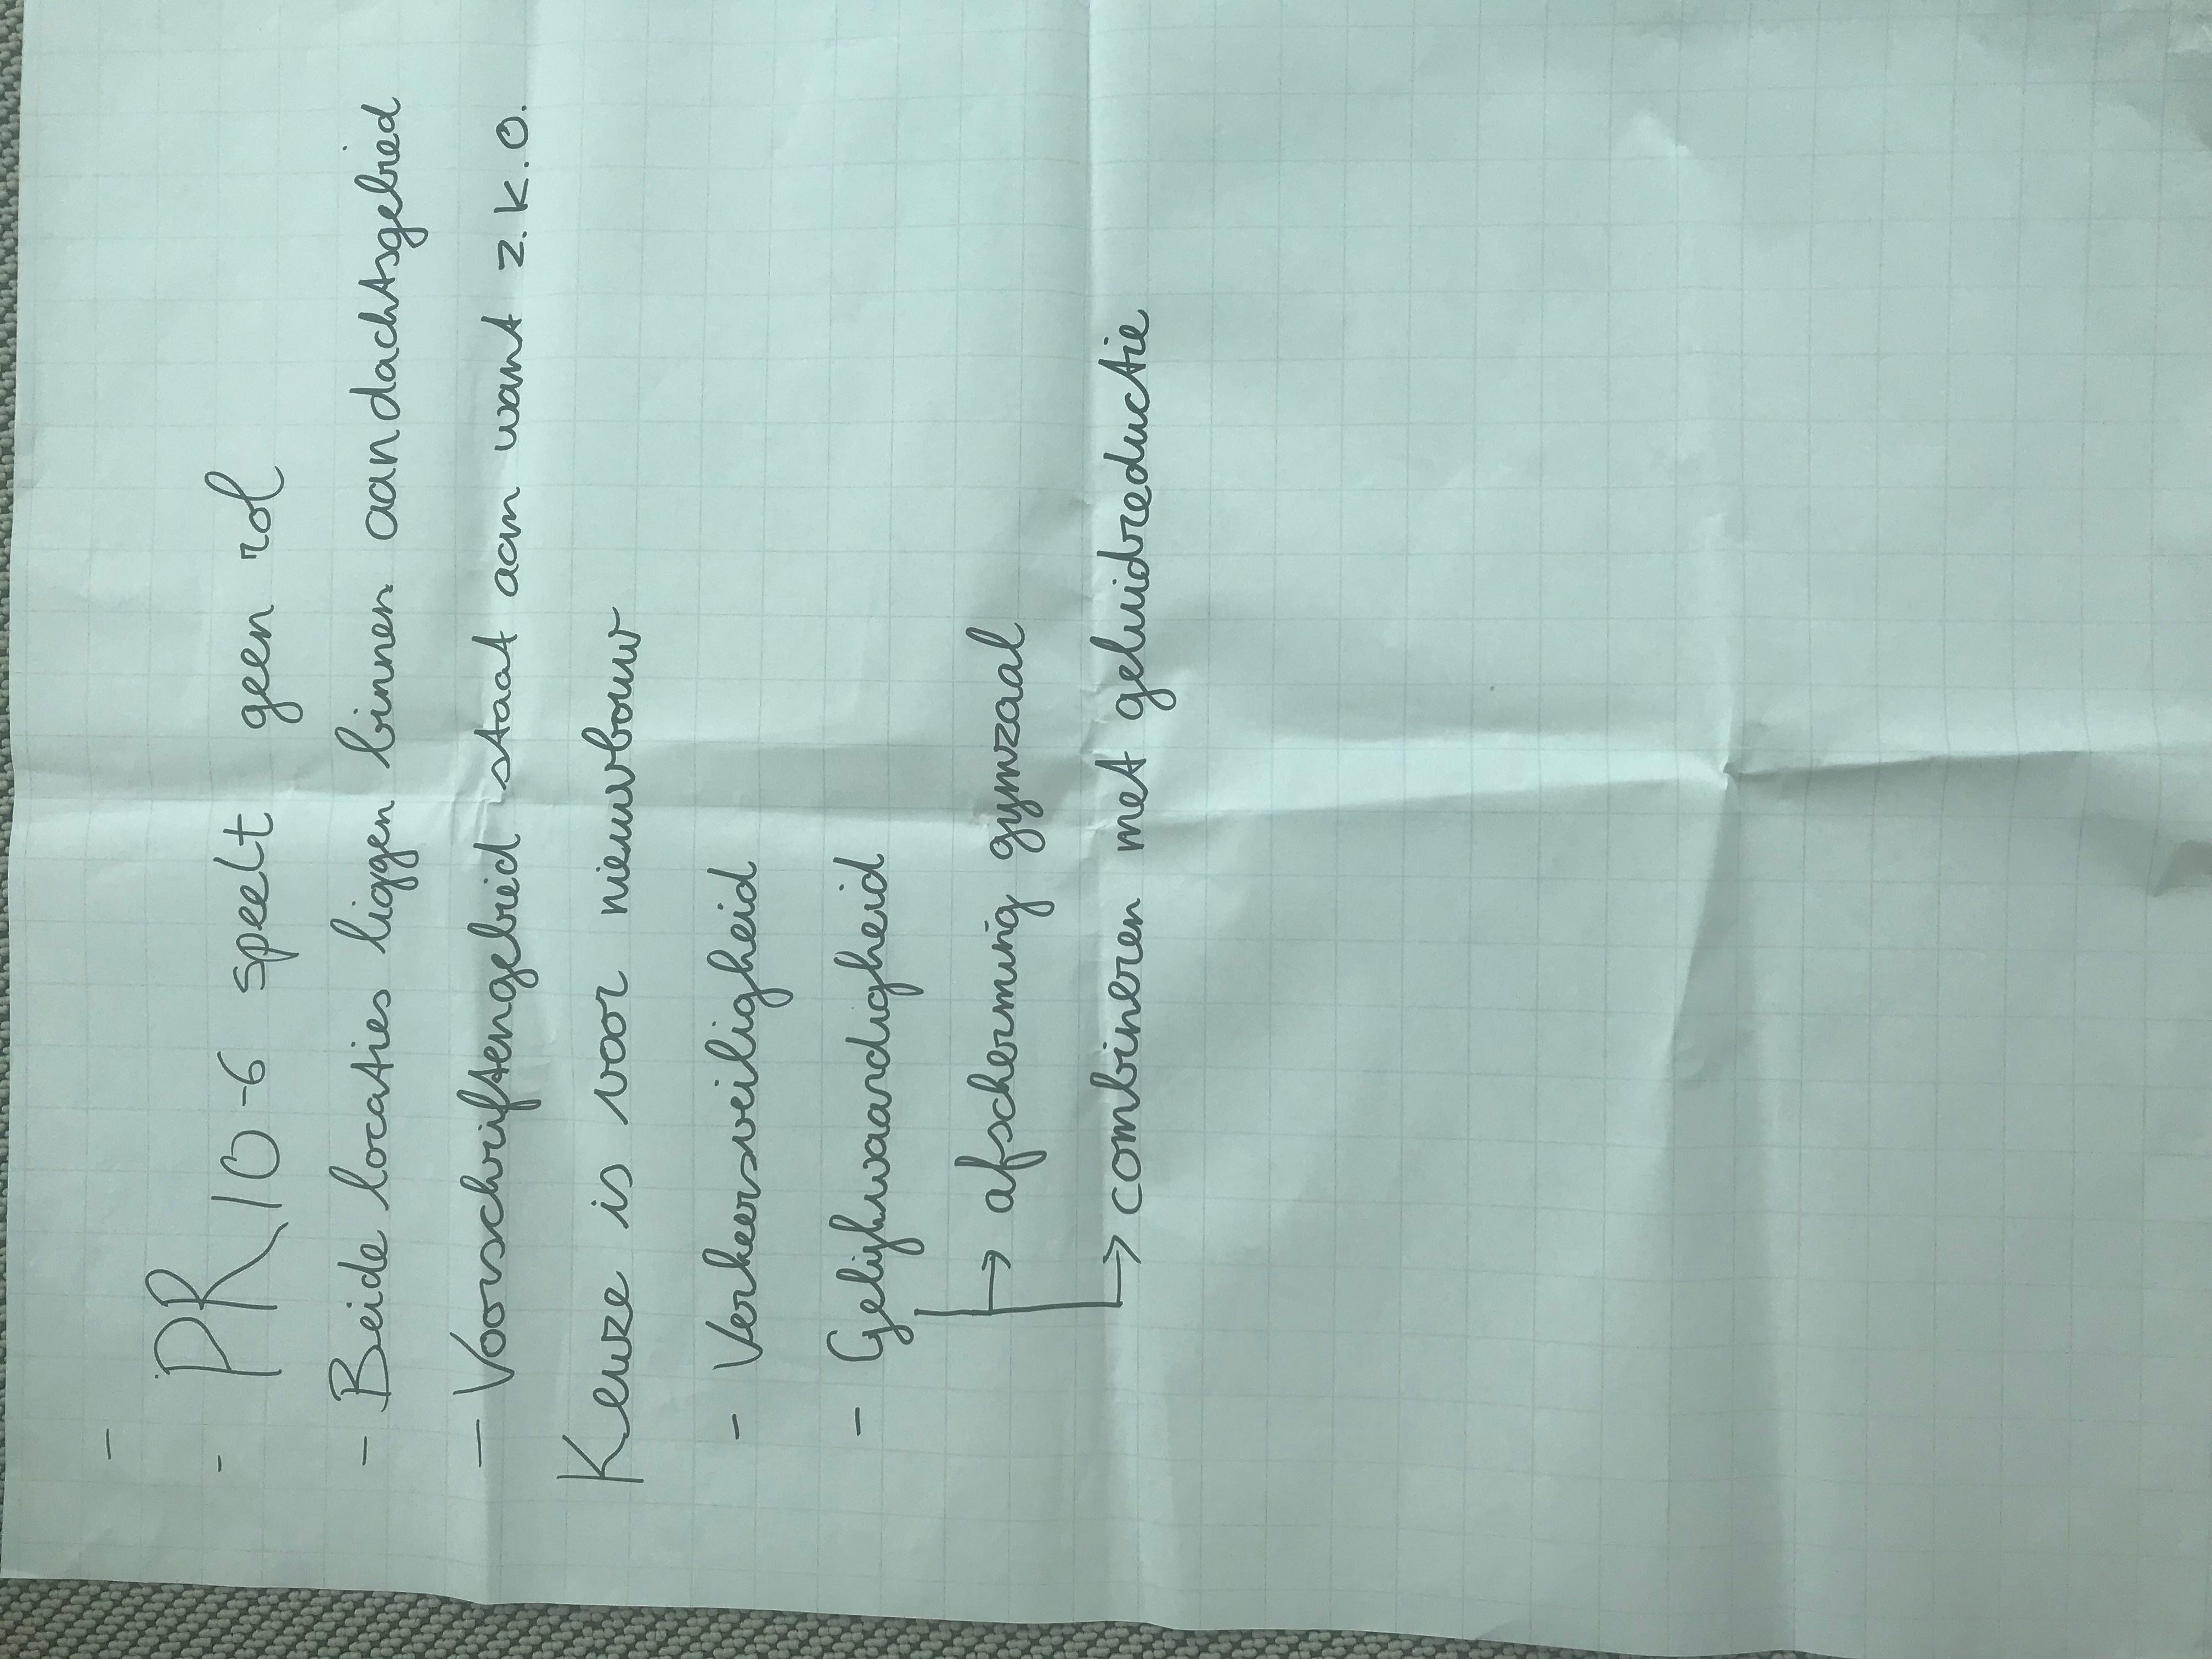 -
- PR 10-6 speelt geen rol
- Beide locaties liggen binnen aandachtsgebied
- Voorschriftengebied staat aan want z.k.o.
Keuze is voor nieuwbouw
- Verkeersveiligheid
- Gelijkwaardigheid
→ afscherming gymzaal
→ combineren met geluidreductie